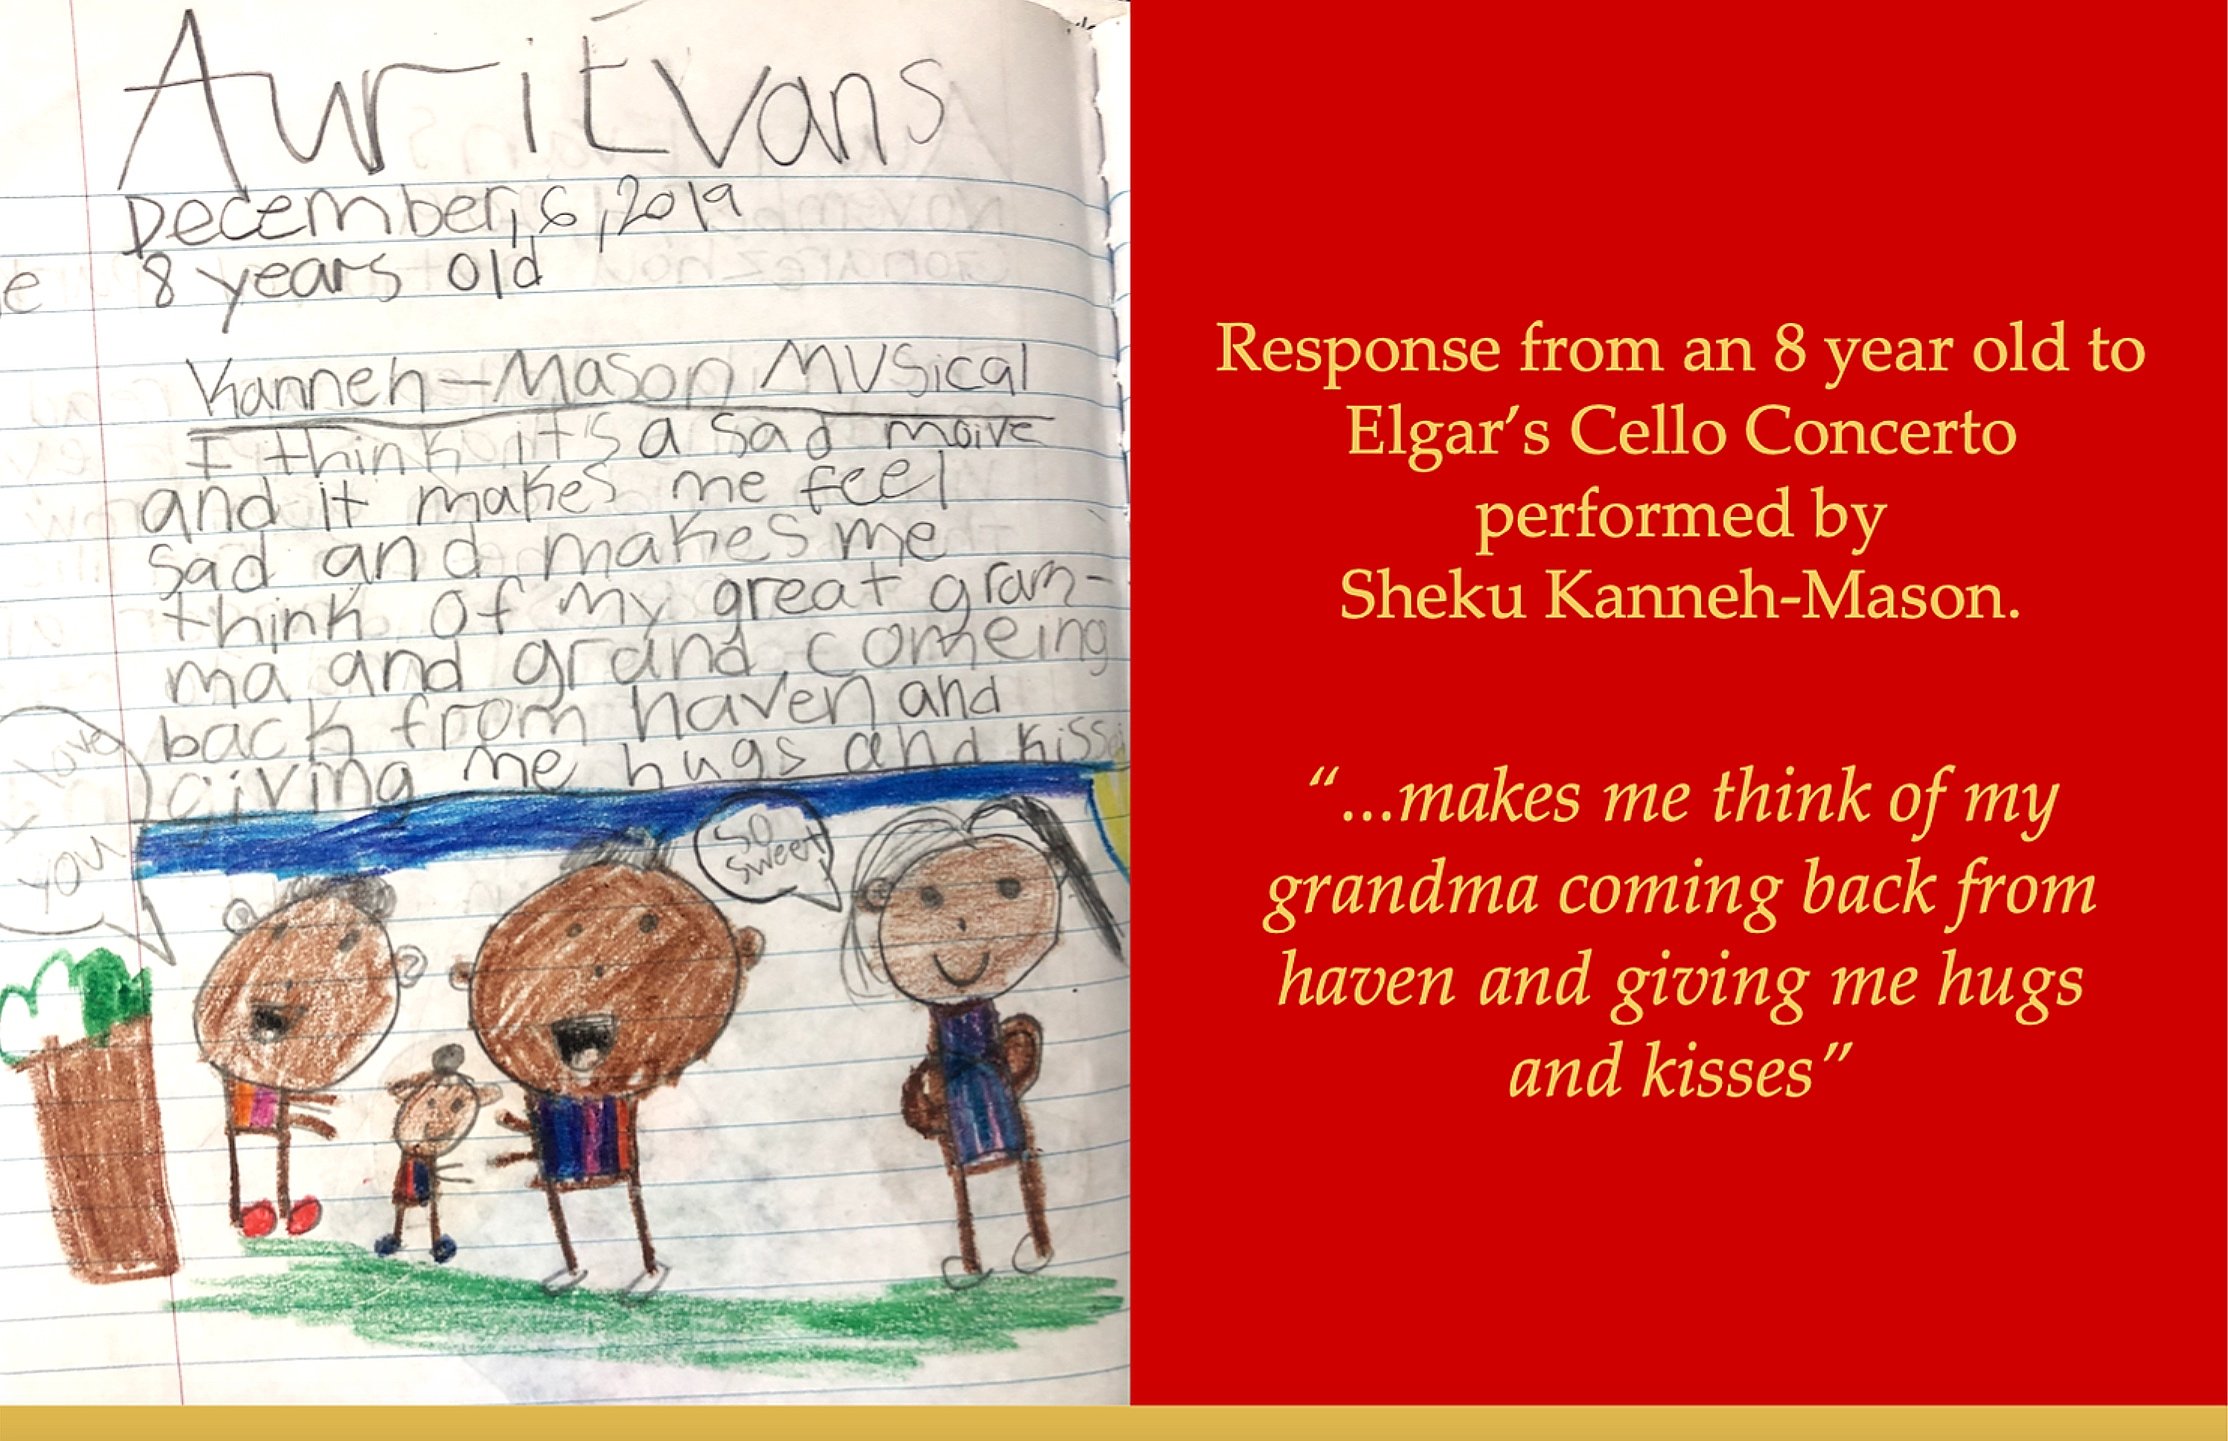 Aur i Evans
December, 6, 2019
8 years old
e
Kanneh-Mason Musical
I think it's a sad moive
and it makes me feel
sad and makes me
think of my great gram-
ma and grand comeing
back from haven and
giving me hugs and kisses
I love
you
so
sweet
Response from an 8 year old to
Elgar's Cello Concerto
performed by
Sheku Kanneh-Mason.
"...makes me think of my
grandma coming back from
haven and giving me hugs
and kisses"